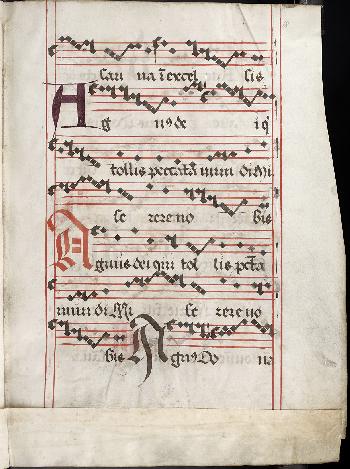 san na i excel sis
Ag nꝰ de iq
tollis peccata mun di mi
se rere no bis
Agnus dei qui tol lis pcta
mun di Mi se rere no
bis Agnꝰ Do na